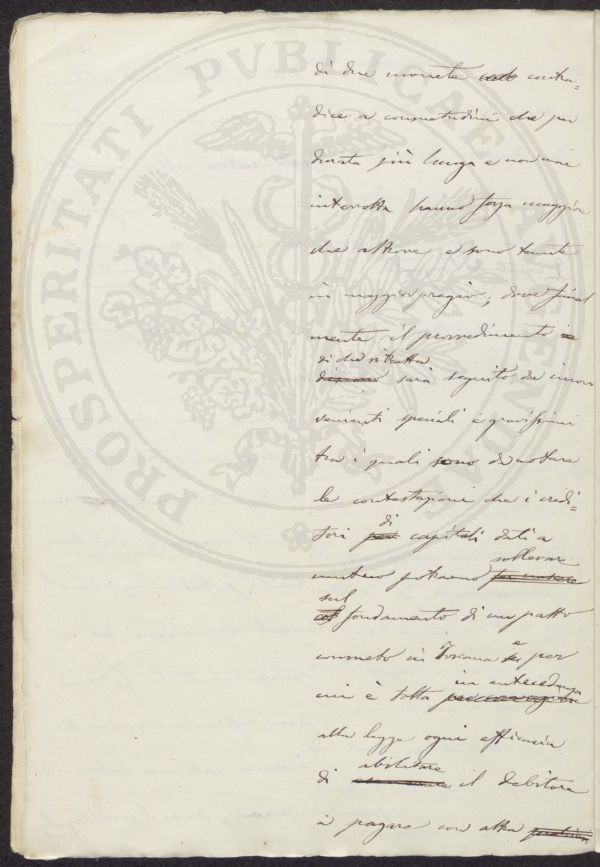 PROSPERITATI PVBLICAE
di due monete contra=
dice a consuetudini che per
durata più lunga e non mai
interrotta hanno forza maggiore
che altrove e sono tenute
in maggior pregio; dove final
mente il provvedimento
di che si tratta
sarà seguito da incon
venienti speciali e gravissimi
tra i quali sono da notare
le contestazioni che i credi=
di
tori per capitali dati a
sollevare
mutuo potranno
sul
fondamento di un patto
consueto in Toscana e per
in antecedenza
cui è tolta
alla legge ogni efficacia
abilitare
di il debitore
a pagare con altra